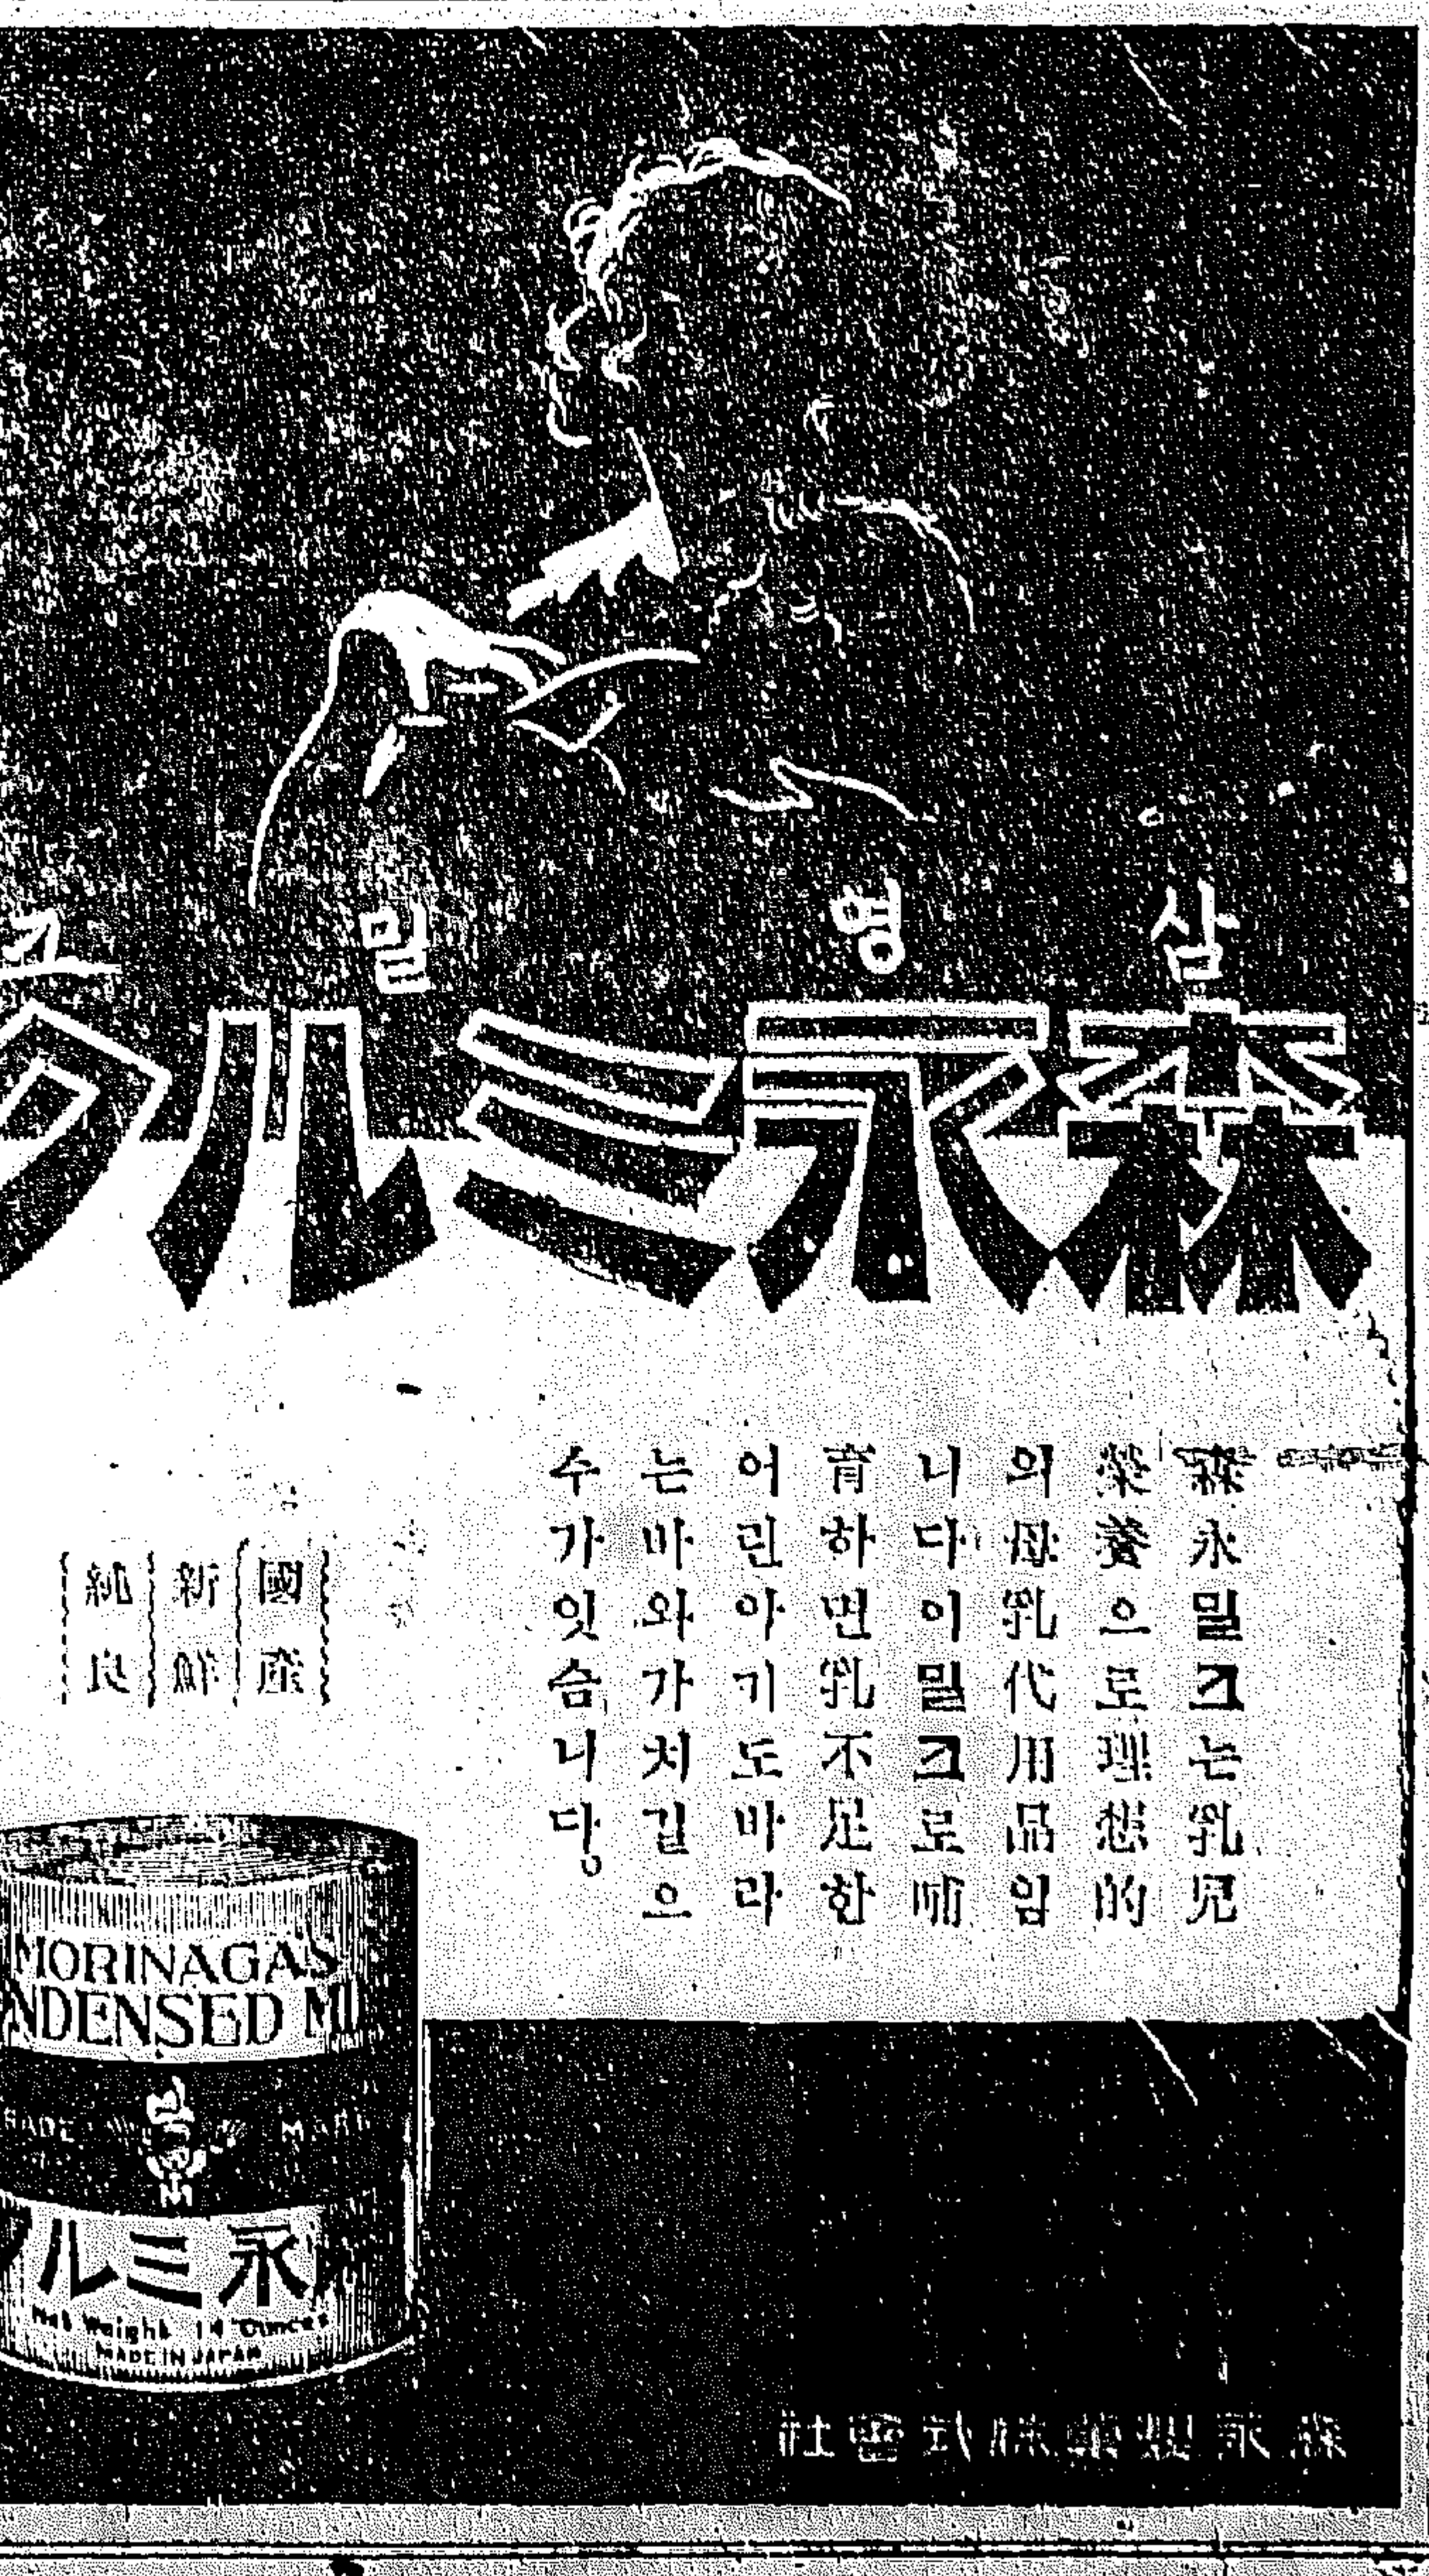 삼영밀크
森永ミルク
森永밀크는乳兒
榮養으로理想的
의母乳代用品임
니다이밀크로哺
育하면乳不足한
어린아기도바라
는바와가치길으
수가잇슴니다。
國産
新鮮
純良
MORINAGA'S
NDENSED MIL
TRADE MARK
永ミルク
Net Weight 14 Ounces
MADE IN JAPAN
森永製菓株式會社